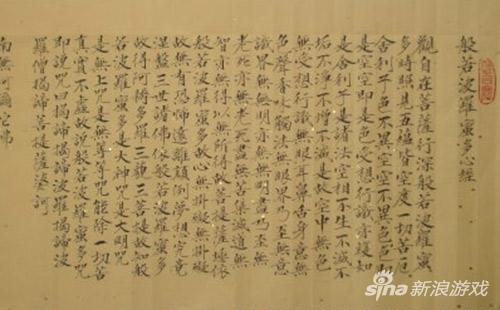 般若波羅蜜多心經
觀自在菩薩行深般若波羅蜜
多時照見五蘊皆空度一切苦厄
舍利子色不異空空不異色色即
是空空即是色受想行識亦復如
是舍利子是諸法空相不生不滅不
垢不淨不增不減是故空中無色
無受想行識無眼耳鼻舌身意無
色聲香味觸法無眼界乃至無意
識界無無明亦無無明盡乃至無
老死亦無老死盡無苦集滅道無
智亦無得以無所得故菩提薩埵依
般若波羅蜜多故心無掛礙無掛礙
故無有恐怖遠離顛倒夢相究竟
涅盤三世諸佛依般若波羅蜜多
故得阿耨多羅三藐三菩提故知般
若波羅蜜多是大神咒是大明咒
是無上咒是無等等咒能除一切苦
真實不虛故說般若波羅蜜多咒
即說咒曰揭諦揭諦波羅揭諦波
羅僧揭諦菩提薩婆訶
南無阿彌陀佛
sina新浪游戏